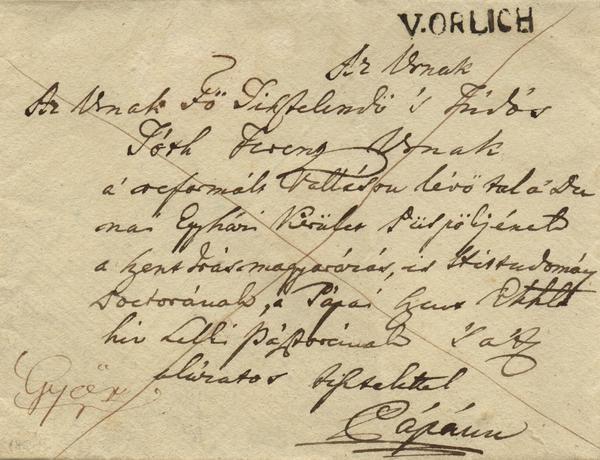 V. ORLICH
Az Urnak
Az Urnak Fő Tisztelendő 's Tudós
Tóth Ferenz Urnak
á reformált Vallásou lévő tul a Du
nai Egyházi Kerület Püspökjének
a Szent Irás magyarázás, is Hittudomány
Doctorának, a Pápai Szent Ekkla
hiv Lelki Pásztorának 's a
alázatos tisztelettel
Győr
Pápánn